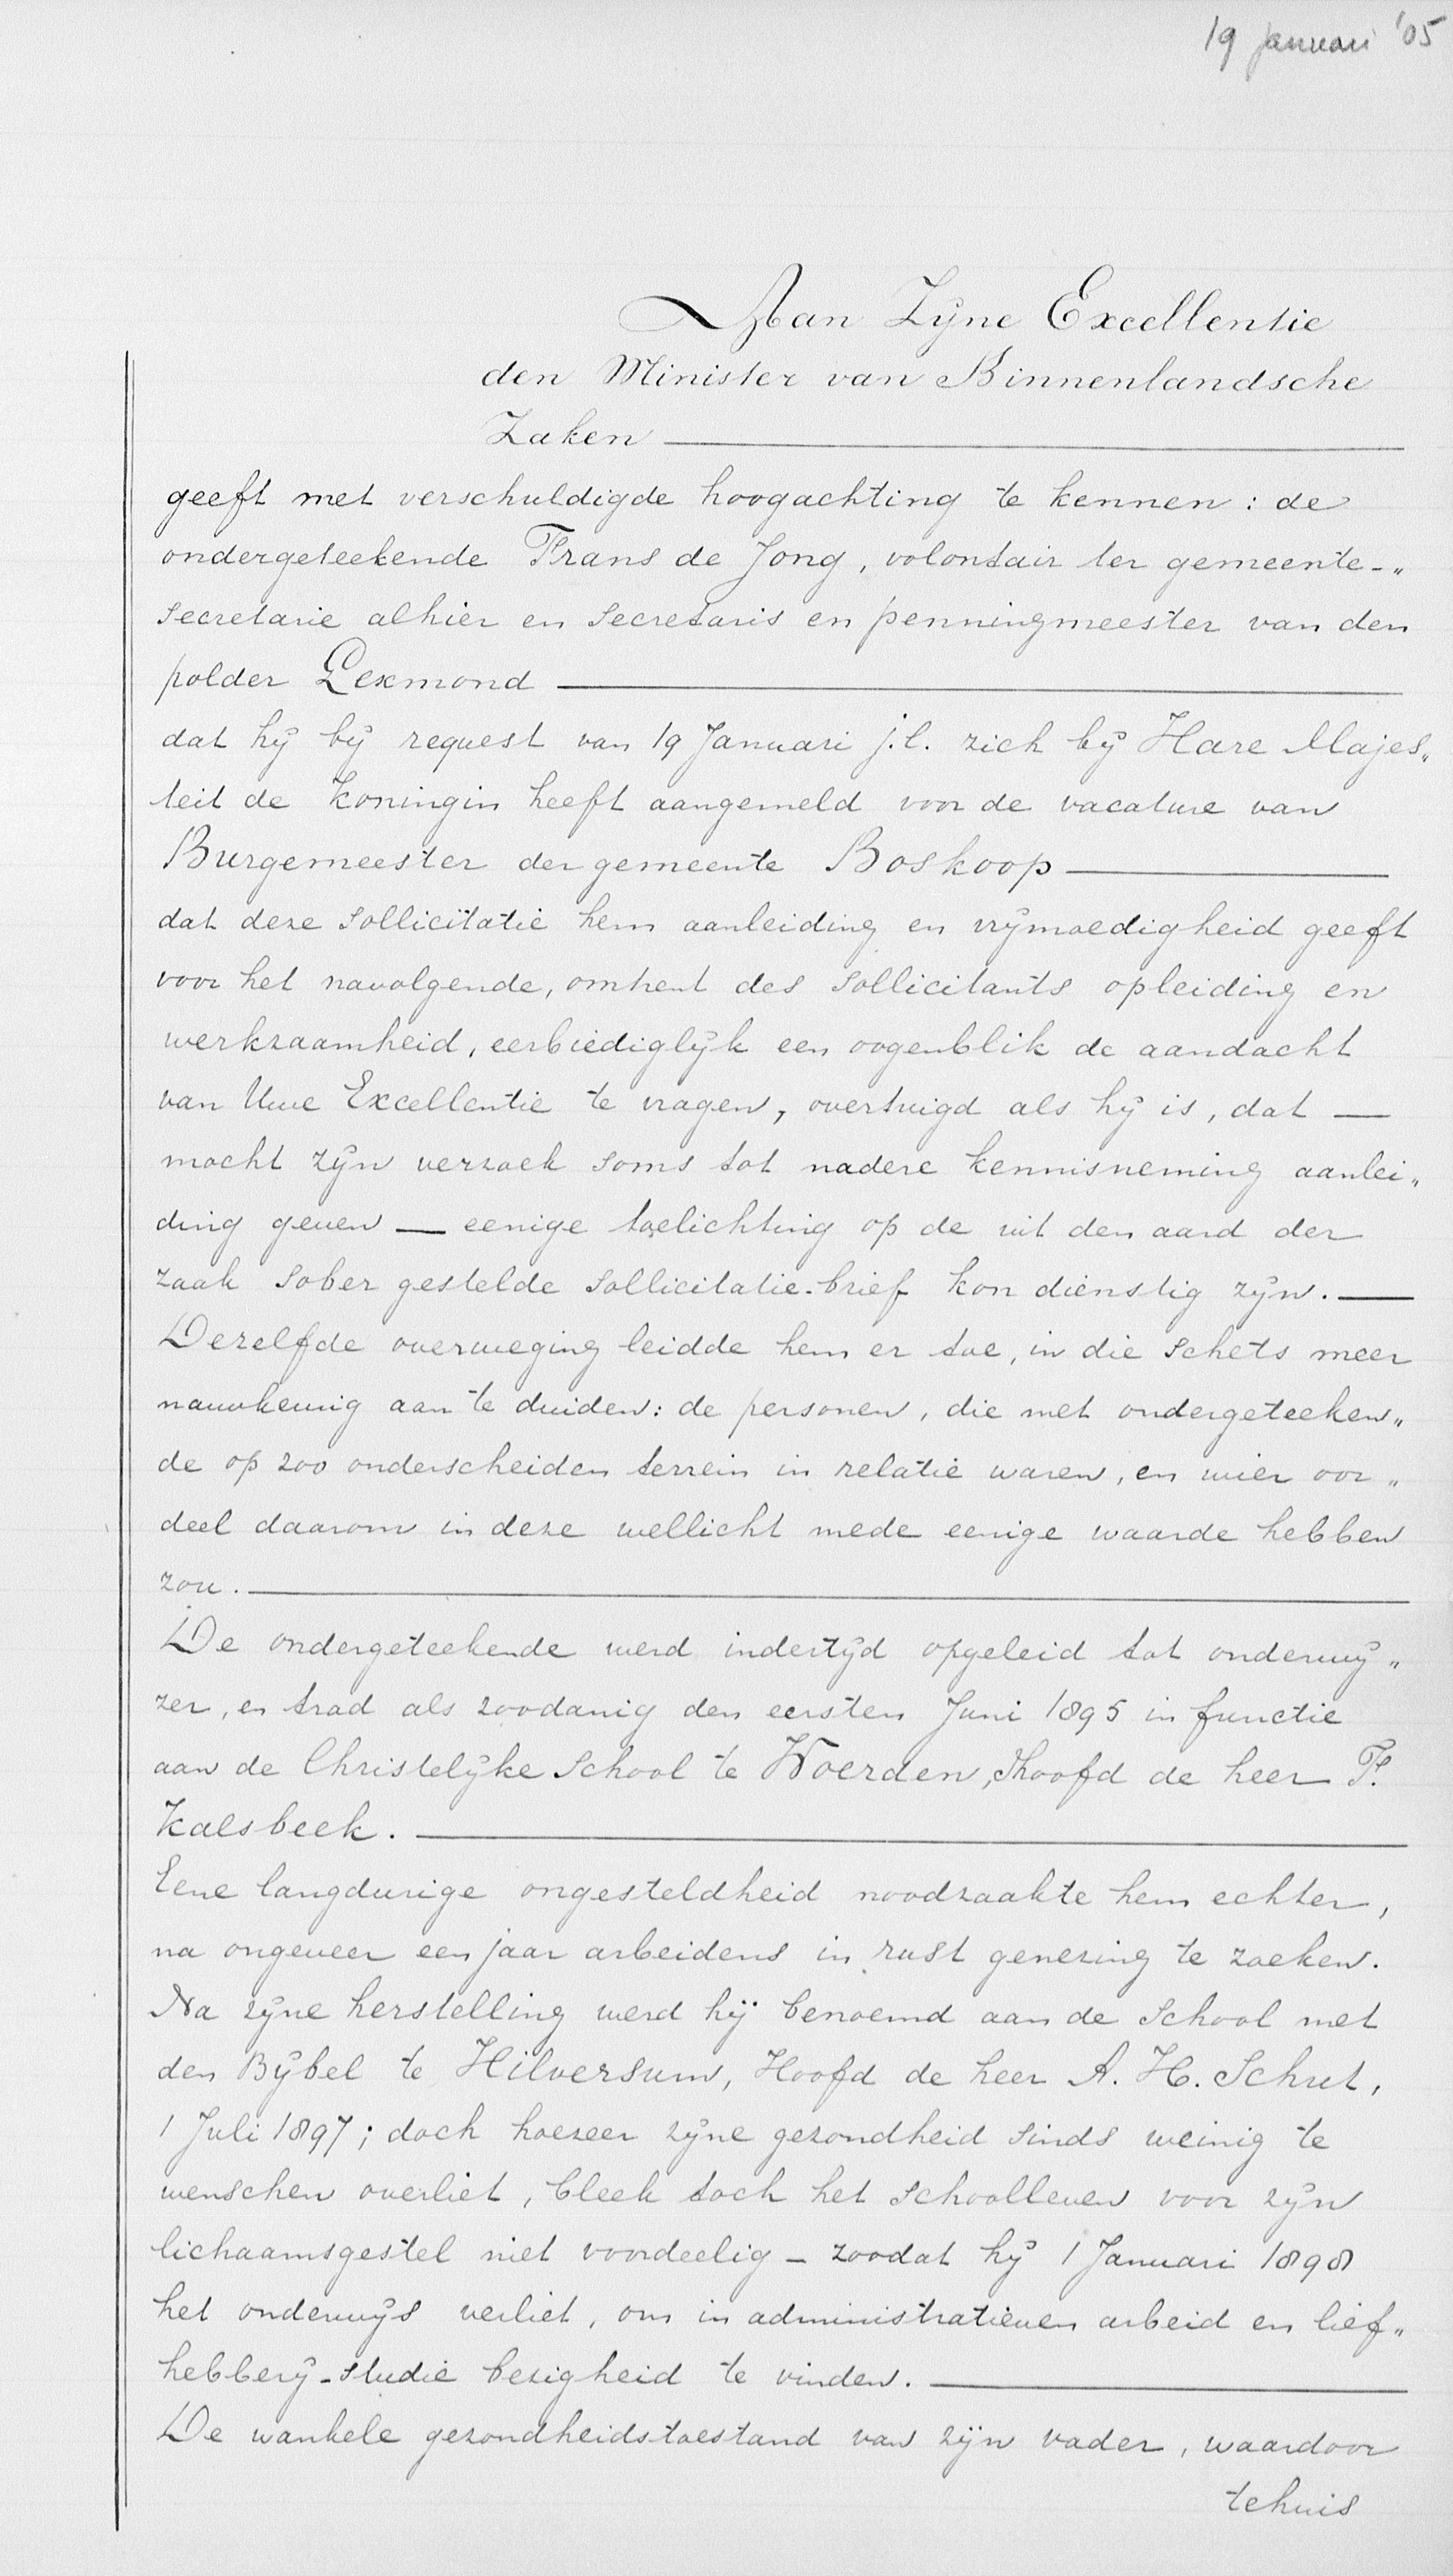 19 januari '05
Aan Zijne Excellentie
den Minister van Binnenlandsche
Zaken —
geeft met verschuldigde hoogachting te kennen : de
ondergeteekende Frans de Jong, volontair ter gemeente-„
secretarie alhier en secretaris en penningmeester van den
polder Lexmond —
dat hij bij request van 19 Januari j.l. zich bij Hare Majes„
teit de Koningin heeft aangemeld voor de vacature van
Burgemeester der gemeente Boskoop —
dat deze sollicitatie hem aanleiding en vrijmoedigheid geeft
voor het navolgende, omtrent des sollicitants opleiding en
werkzaamheid, eerbiediglijk een oogenblik de aandacht
van Uwe Excellentie te vragen, overtuigd als hij is, dat —
mocht zijn verzoek soms tot nadere kennisneming aanlei„
ding geven — eenige toelichting op de uit den aard der
zaak sober gestelde sollicitatie-brief kon dienstig zijn. —
Dezelfde overweging leidde hem er toe, in die schets meer
nauwkeurig aan te duiden: de personen, die met ondergeteeken„
de op zoo onderscheiden terrein in relatie waren, en wier oor„
deel daarom in deze wellicht mede eenige waarde hebben
zou. —
De ondergeteekende werd indertijd opgeleid tot onderwij„
zer, en trad als zoodanig den eersten Juni 1895 in functie
aan de Christelijke School te Woerden, Hoofd de heer F.
Kalsbeek. —
Eene langdurige ongesteldheid noodzaakte hem echter,
na ongeveer een jaar arbeidens in rust genezing te zoeken.
Na zijne herstelling werd hij benoemd aan de School met
den Bijbel te Hilversum, Hoofd de heer A. H. Schut,
1 Juli 1897 ; doch hoezeer zijne gezondheid sinds weinig te
wenschen overliet, bleek toch het schoolleven voor zijn
lichaamsgestel niet voordeelig – zoodat hij 1 Januari 1898
het onderwijs verliet, om in administratieven arbeid en lief„
hebberij-studie bezigheid te vinden. —
De wankele gezondheidstoestand van zijn vader, waardoor
tehuis